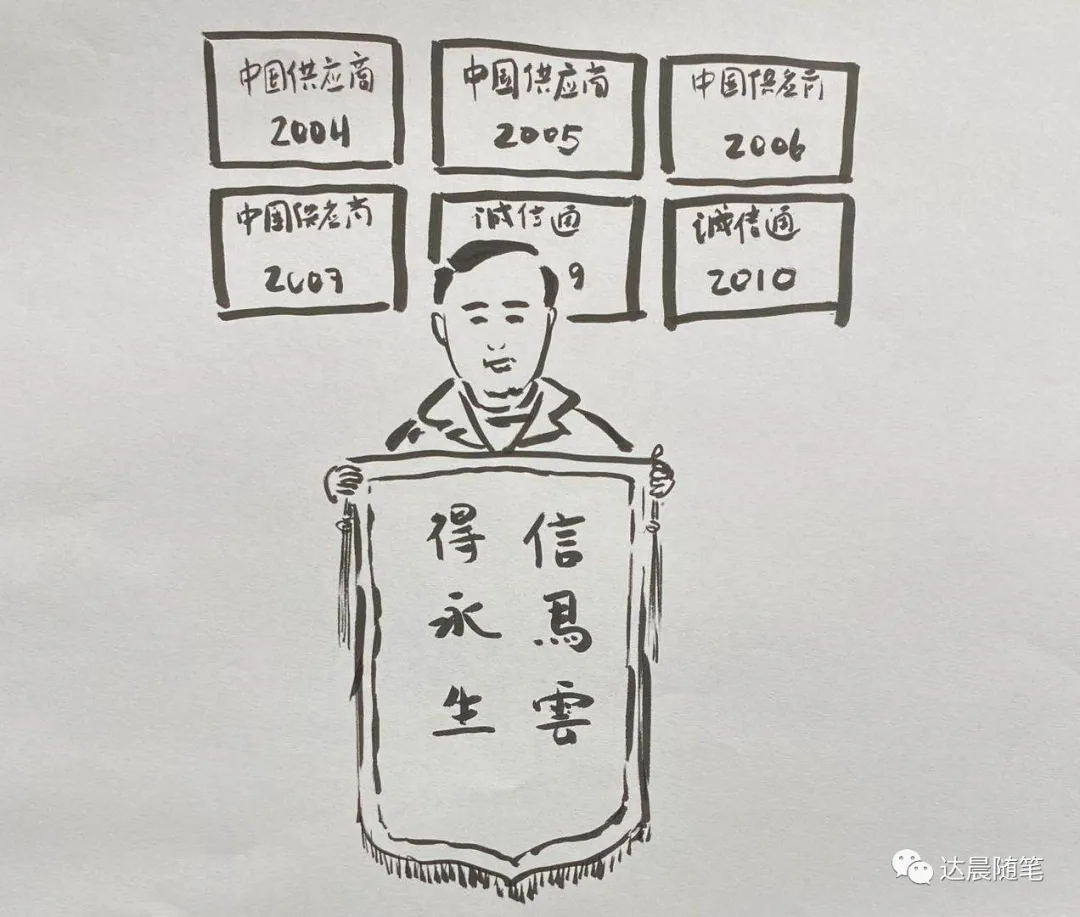 中国供应商
2004
中国供应商
2005
中国供应商
2006
中国供应商
2007
诚信通
9
诚信通
2010
信馬雲
得永生
达晨随笔